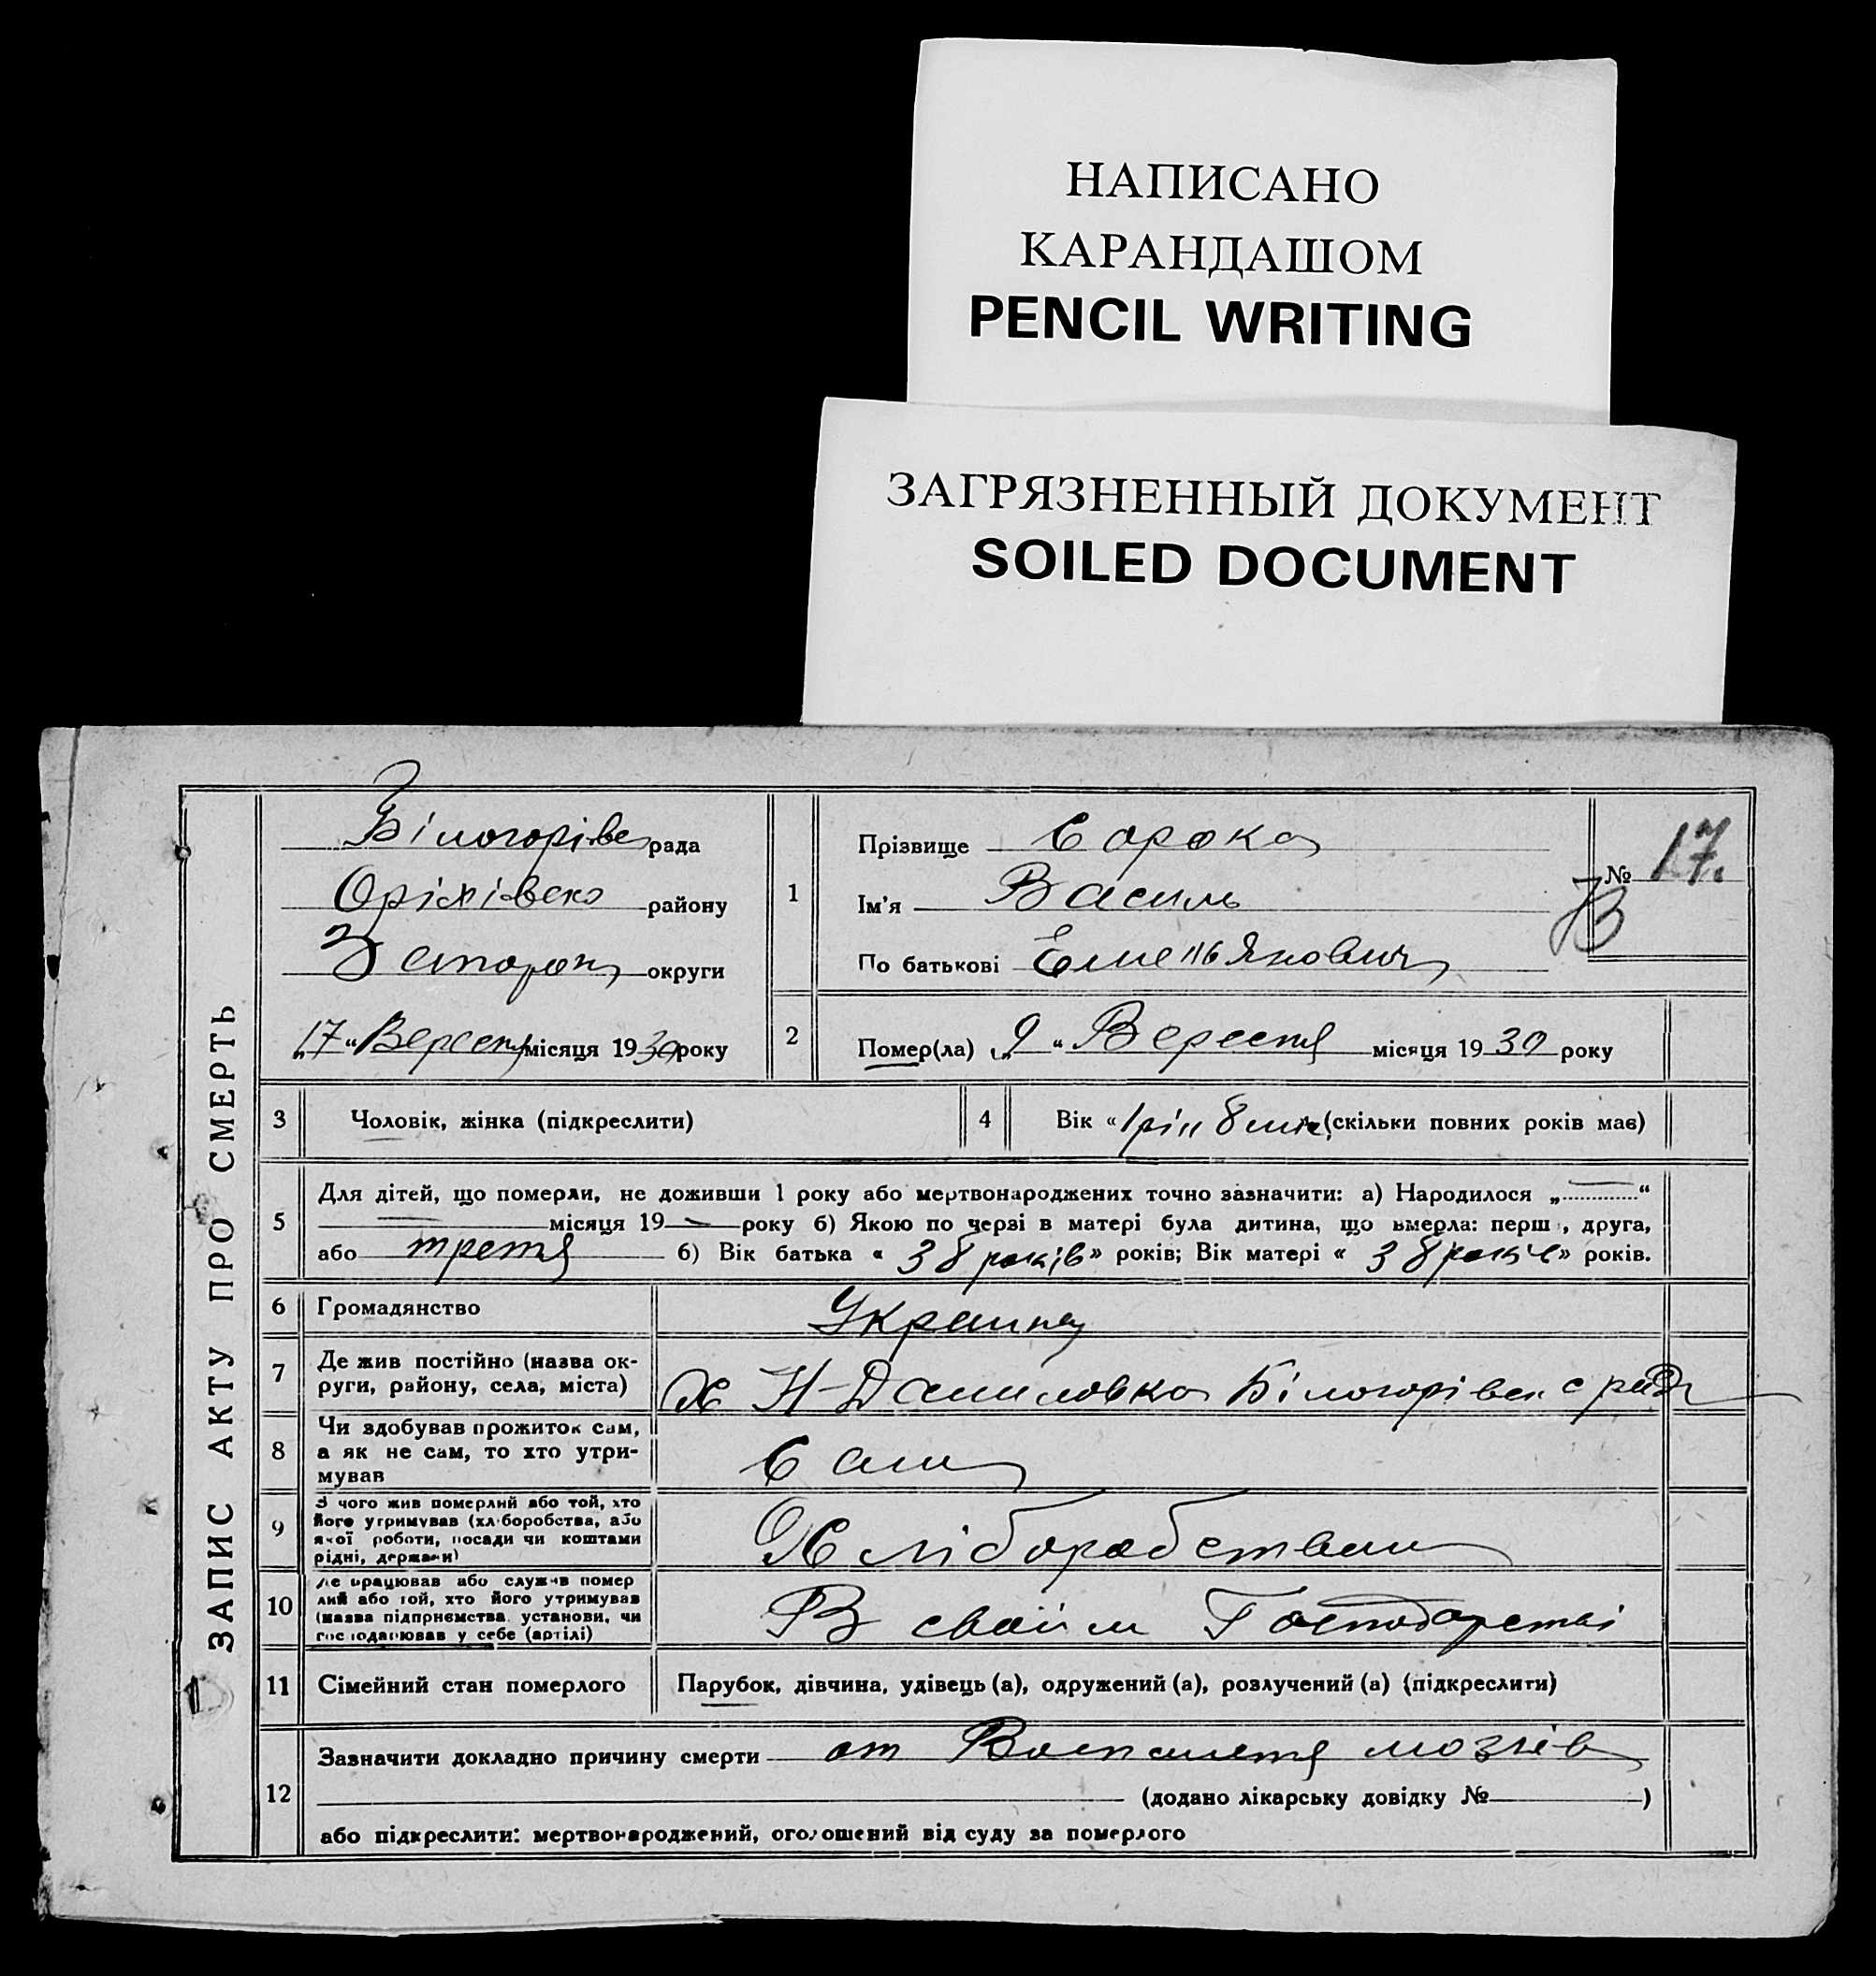 НАПИСАНО
КАРАНДАШОМ
PENCIL WRITING
ЗАГРЯЗНЕННЫЙ ДОКУМЕНТ
SOILED DOCUMENT
ЗАПИС АКТУ ПРО СМЕРТЬ
Білогорівс рада
Оріхівско району
Запорож округи
„17“ Вересня місяця 1930 року
1 Прізвище Сорока
Ім'я Василь
По батькові Емельянович
№ 17.
2 Помер(ла) „9“ Вересня місяця 1930 року
3 Чоловік, жінка (підкреслити)
4 Вік «1 рік 8 міс. (скільки повних років має)
5 Для дітей, що померли, не доживши 1 року або мертвонароджених точно зазначити: а) Народилося „—“
— місяця 19— року б) Якою по черзі в матері була дитина, що вмерла: перша, друга,
або третя б) Вік батька « 38 років» років; Вік матері « 38 років» років.
6 Громадянство Украинец
7 Де жив постійно (назва ок-
руги, району, села, міста) Х Н-Даниловка Білогорівск с рада
8 Чи здобував прожиток сам,
а як не сам, то хто утри-
мував Сам
9 З чого жив померлий або той, хто
його утримував (хліборобства, або
якої роботи, посади чи коштами
рідні, держави) Хліборобством
10 Де працював або служив помер
лий або той, хто його утримував
(назва підприємства установи, чи
господарював у себе (артілі) В своїм Господарстві
11 Сімейний стан померлого Парубок, дівчина, удівець (а), одружений (а), розлучений (а) (підкреслити)
12 Зазначити докладно причину смерти от Воспаленя мозгів
(додано лікарську довідку № )
або підкреслити: мертвонароджений, оголошений від суду за померлого